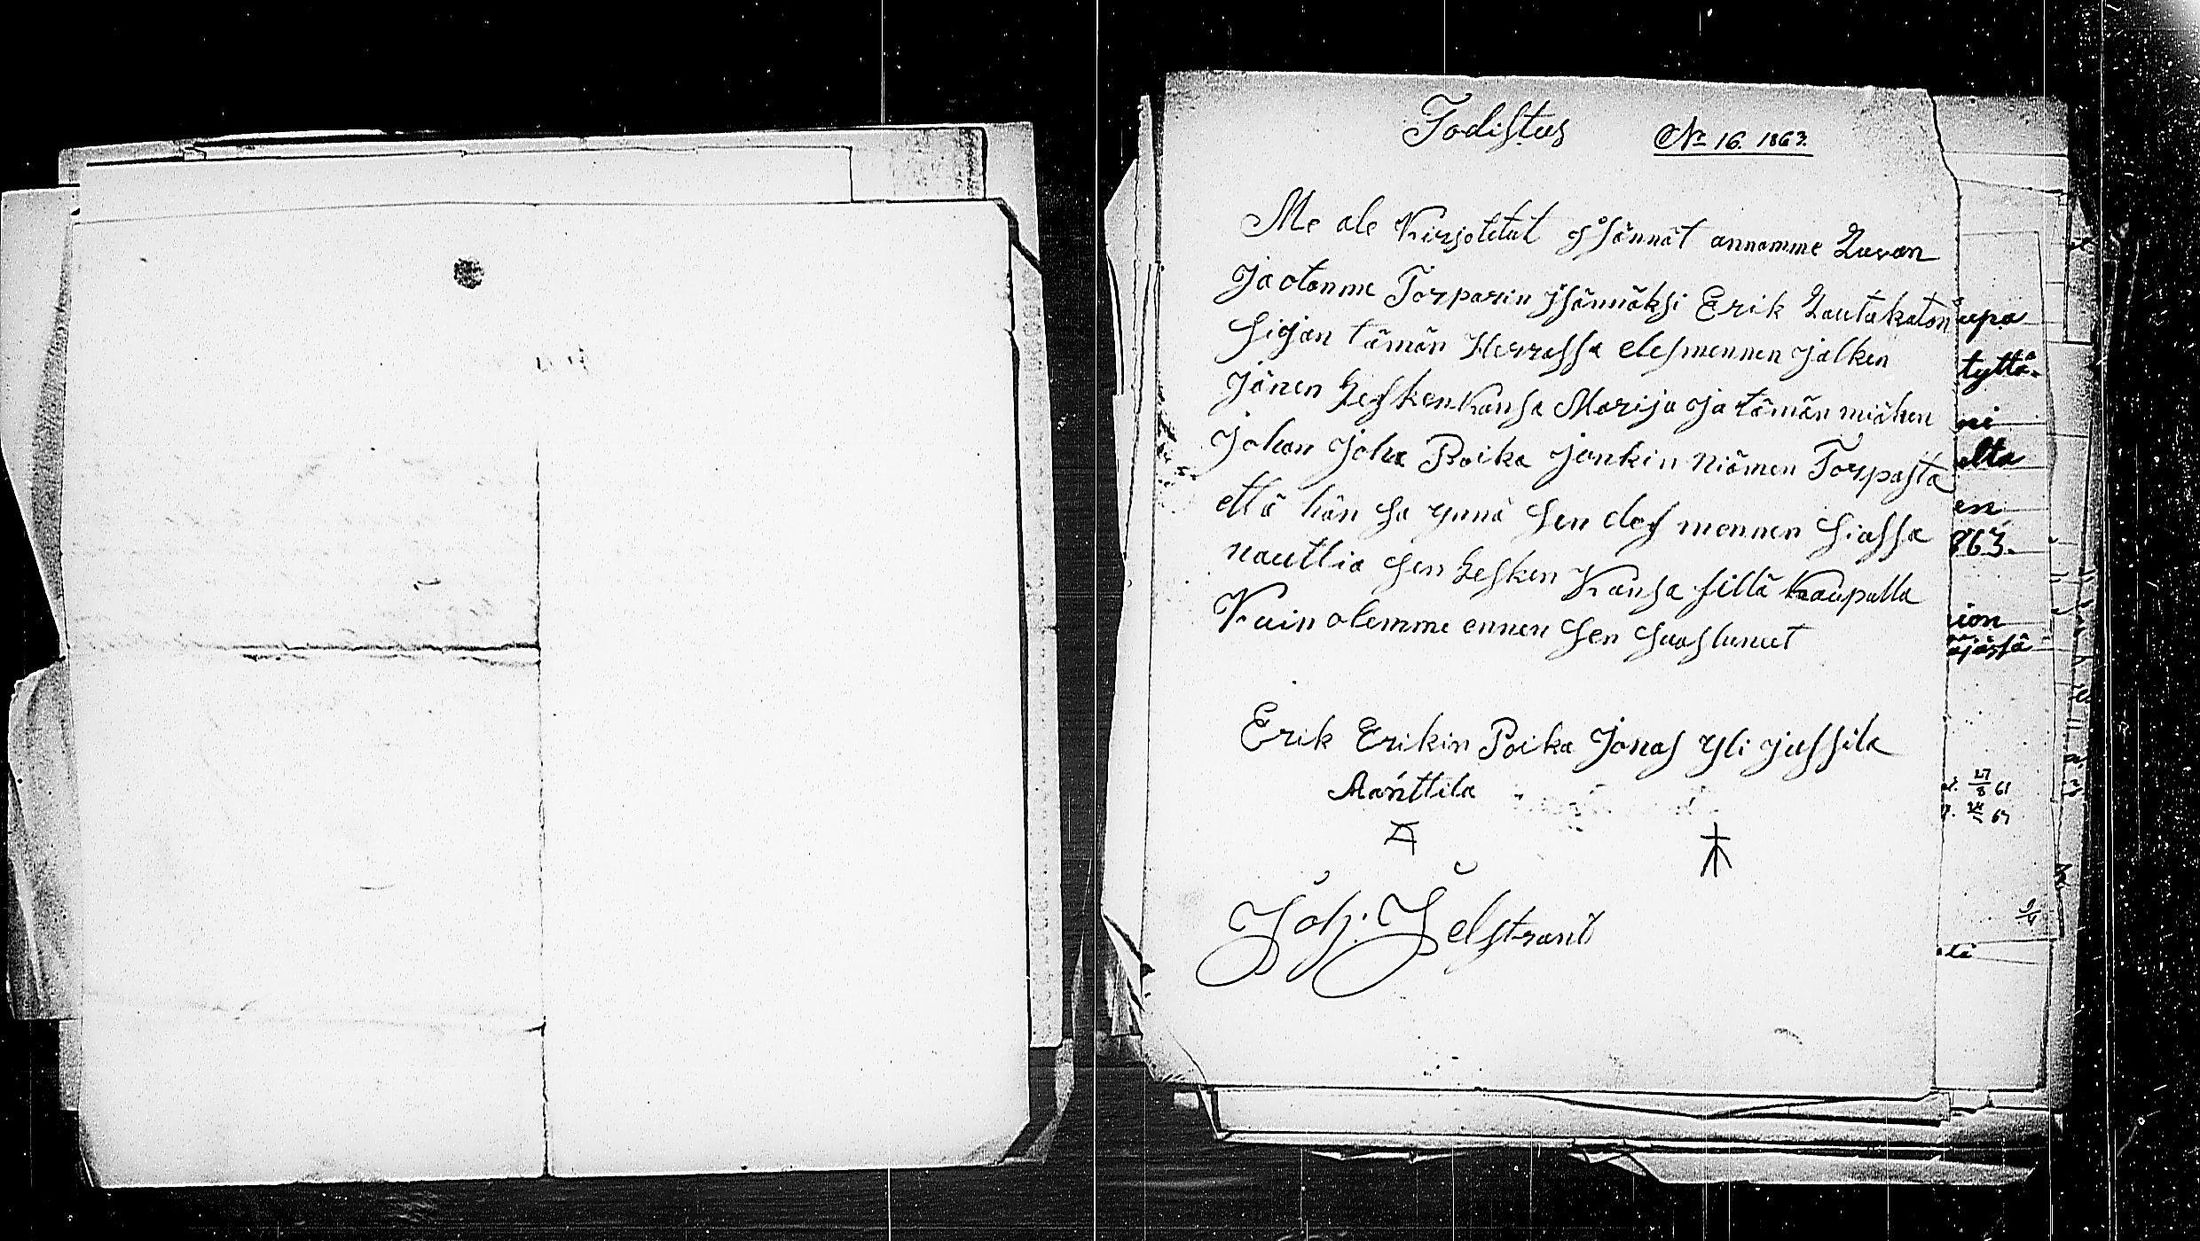 Todistus № 16. 1863.
Me ale Kirjotetut isännät annamme Luvan
ja otamme Torparin jsännäksi Erik Lautakaton
sigan tämän Herrassa edesmennen jälken
jänen Lesken kansa Marija ja tämän miähen
Johan Joha Poika jonkin niämen Torpasta
että hän sa ynnä sen des mennen siassa
nauttia sen Lesken Kansa sillä kaupalla
Kuin olemme ennen sen suastunut
Erik Erikin Poika Jonas yli jussila
Mänttila
Joh. Jelstrant
upa
tyttä-
ni
elta
en
863.
ion
äjässä
27/8 61